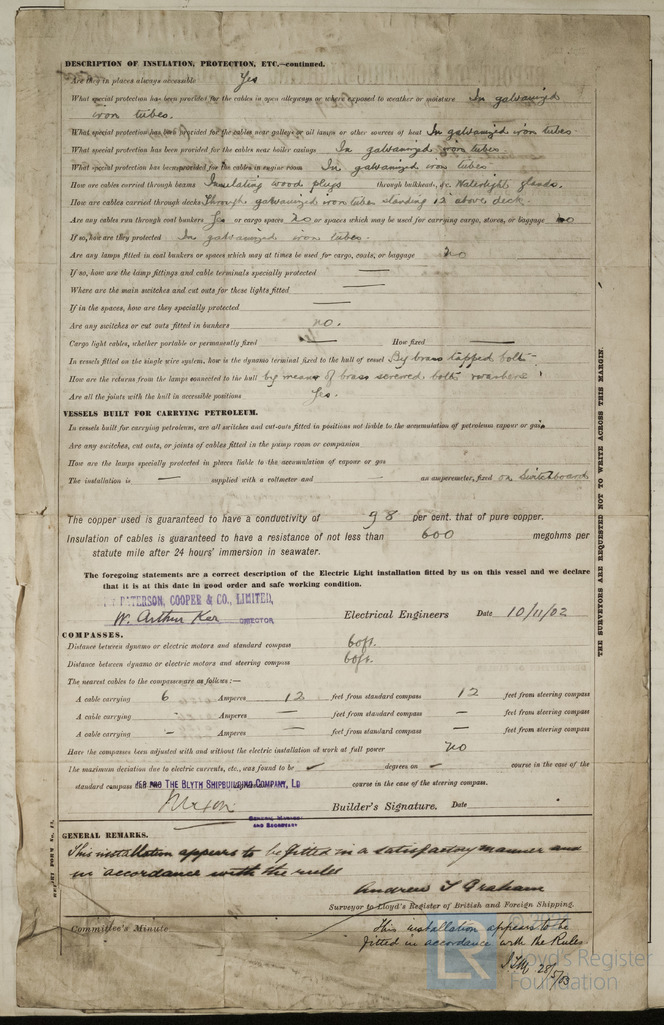 DESCRIPTION OF INSULATION, PROTECTION, ETC.—continued.
Are they in places always accessible Yes
What special protection has been provided for the cables in open alleyways or where exposed to weather or moisture In galvanized
iron tubes.
What special protection has been provided for the cables near galleys or oil lamps or other sources of heat In galvanized iron tubes
What special protection has been provided for the cables near boiler casings In galvanized iron tubes
What special protection has been provided for the cables in engine room In galvanized iron tubes
How are cables carried through beams Insulating wood plugs through bulkheads, &c. Watertight glands.
How are cables carried through decks Through galvanized iron tubes standing 12" above deck.
Are any cables run through coal bunkers Yes or cargo spaces No or spaces which may be used for carrying cargo, stores, or baggage No
If so, how are they protected In galvanized iron tubes.
Are any lamps fitted in coal bunkers or spaces which may at times be used for cargo, coals, or baggage No
If so, how are the lamp fittings and cable terminals specially protected —
Where are the main switches and cut outs for these lights fitted —
If in the spaces, how are they specially protected —
Are any switches or cut outs fitted in bunkers no.
Cargo light cables, whether portable or permanently fixed — How fixed —
In vessels fitted on the single wire system, how is the dynamo terminal fixed to the hull of vessel By brass tapped bolts
How are the returns from the lamps connected to the hull by means of brass screwed bolts & washers
Are all the joints with the hull in accessible positions Yes.
VESSELS BUILT FOR CARRYING PETROLEUM.
In vessels built for carrying petroleum, are all switches and cut-outs fitted in positions not liable to the accumulation of petroleum vapour or gas
Are any switches, cut outs, or joints of cables fitted in the pump room or companion
How are the lamps specially protected in places liable to the accumulation of vapour or gas
The installation is — supplied with a voltmeter and — an amperemeter, fixed on Switchboard
The copper used is guaranteed to have a conductivity of 98 per cent. that of pure copper.
Insulation of cables is guaranteed to have a resistance of not less than 600 megohms per
statute mile after 24 hours' immersion in seawater.
The foregoing statements are a correct description of the Electric Light installation fitted by us on this vessel and we declare
that it is at this date in good order and safe working condition.
PATERSON, COOPER & CO., LIMITED,
W. Arthur Ker DIRECTOR, Electrical Engineers Date 10/11/02
COMPASSES.
Distance between dynamo or electric motors and standard compass 60ft.
Distance between dynamo or electric motors and steering compass 60ft.
The nearest cables to the compasses are as follows:—
A cable carrying 6 Amperes 12 feet from standard compass 12 feet from steering compass
A cable carrying - Amperes — feet from standard compass — feet from steering compass
A cable carrying - Amperes — feet from standard compass — feet from steering compass
Have the compasses been adjusted with and without the electric installation at work at full power No
The maximum deviation due to electric currents, etc., was found to be degrees on course in the case of the
standard compass THE BLYTH SHIPBUILDING COMPANY, LD course in the case of the steering compass.
GENERAL MANAGER
AND SECRETARY
Builder's Signature. Date
GENERAL REMARKS.
This installation appears to be fitted in a satisfactory manner and
in accordance with the rules
Andrew T Graham
Surveyor to Lloyd's Register of British and Foreign Shipping.
Committee's Minute
This installation appears to be
fitted in accordance with the Rules
28/5/03
THE SURVEYORS ARE REQUESTED NOT TO WRITE ACROSS THIS MARGIN.
LR
Lloyd's Register
Foundation